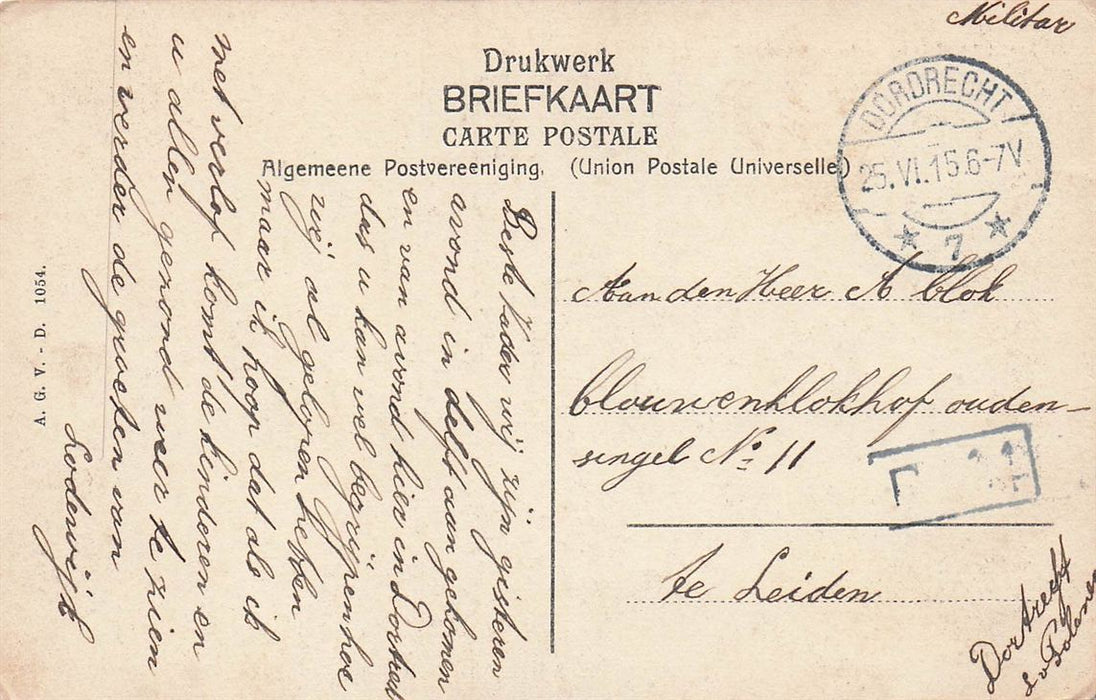 Militar
Drukwerk
BRIEFKAART
CARTE POSTALE
Algemeene Postvereeniging. (Union Postale Universelle)
DORDRECHT
25.VI.15.6-7V.
7
Beste Vader wij zijn gisteren
avond in delft aan gekomen
en van avond hier in Dortrecht
dus u kan wel begrijpen hoe
wij al gelopen heben
maar ik hoop dat als ik
met verlof komt de kinderen en
u allen gezond weer te zien
en verder de groeten van
Lodewijk
A. G. V. - D. 1054.
Aan den Heer A blok
blouwenklokhof ouden-
singel No 11
te Leiden
Dortrecht